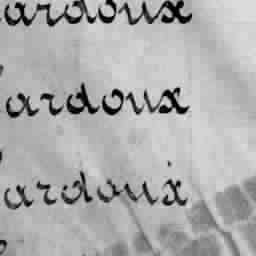 ardoux
ardoux
ardoux